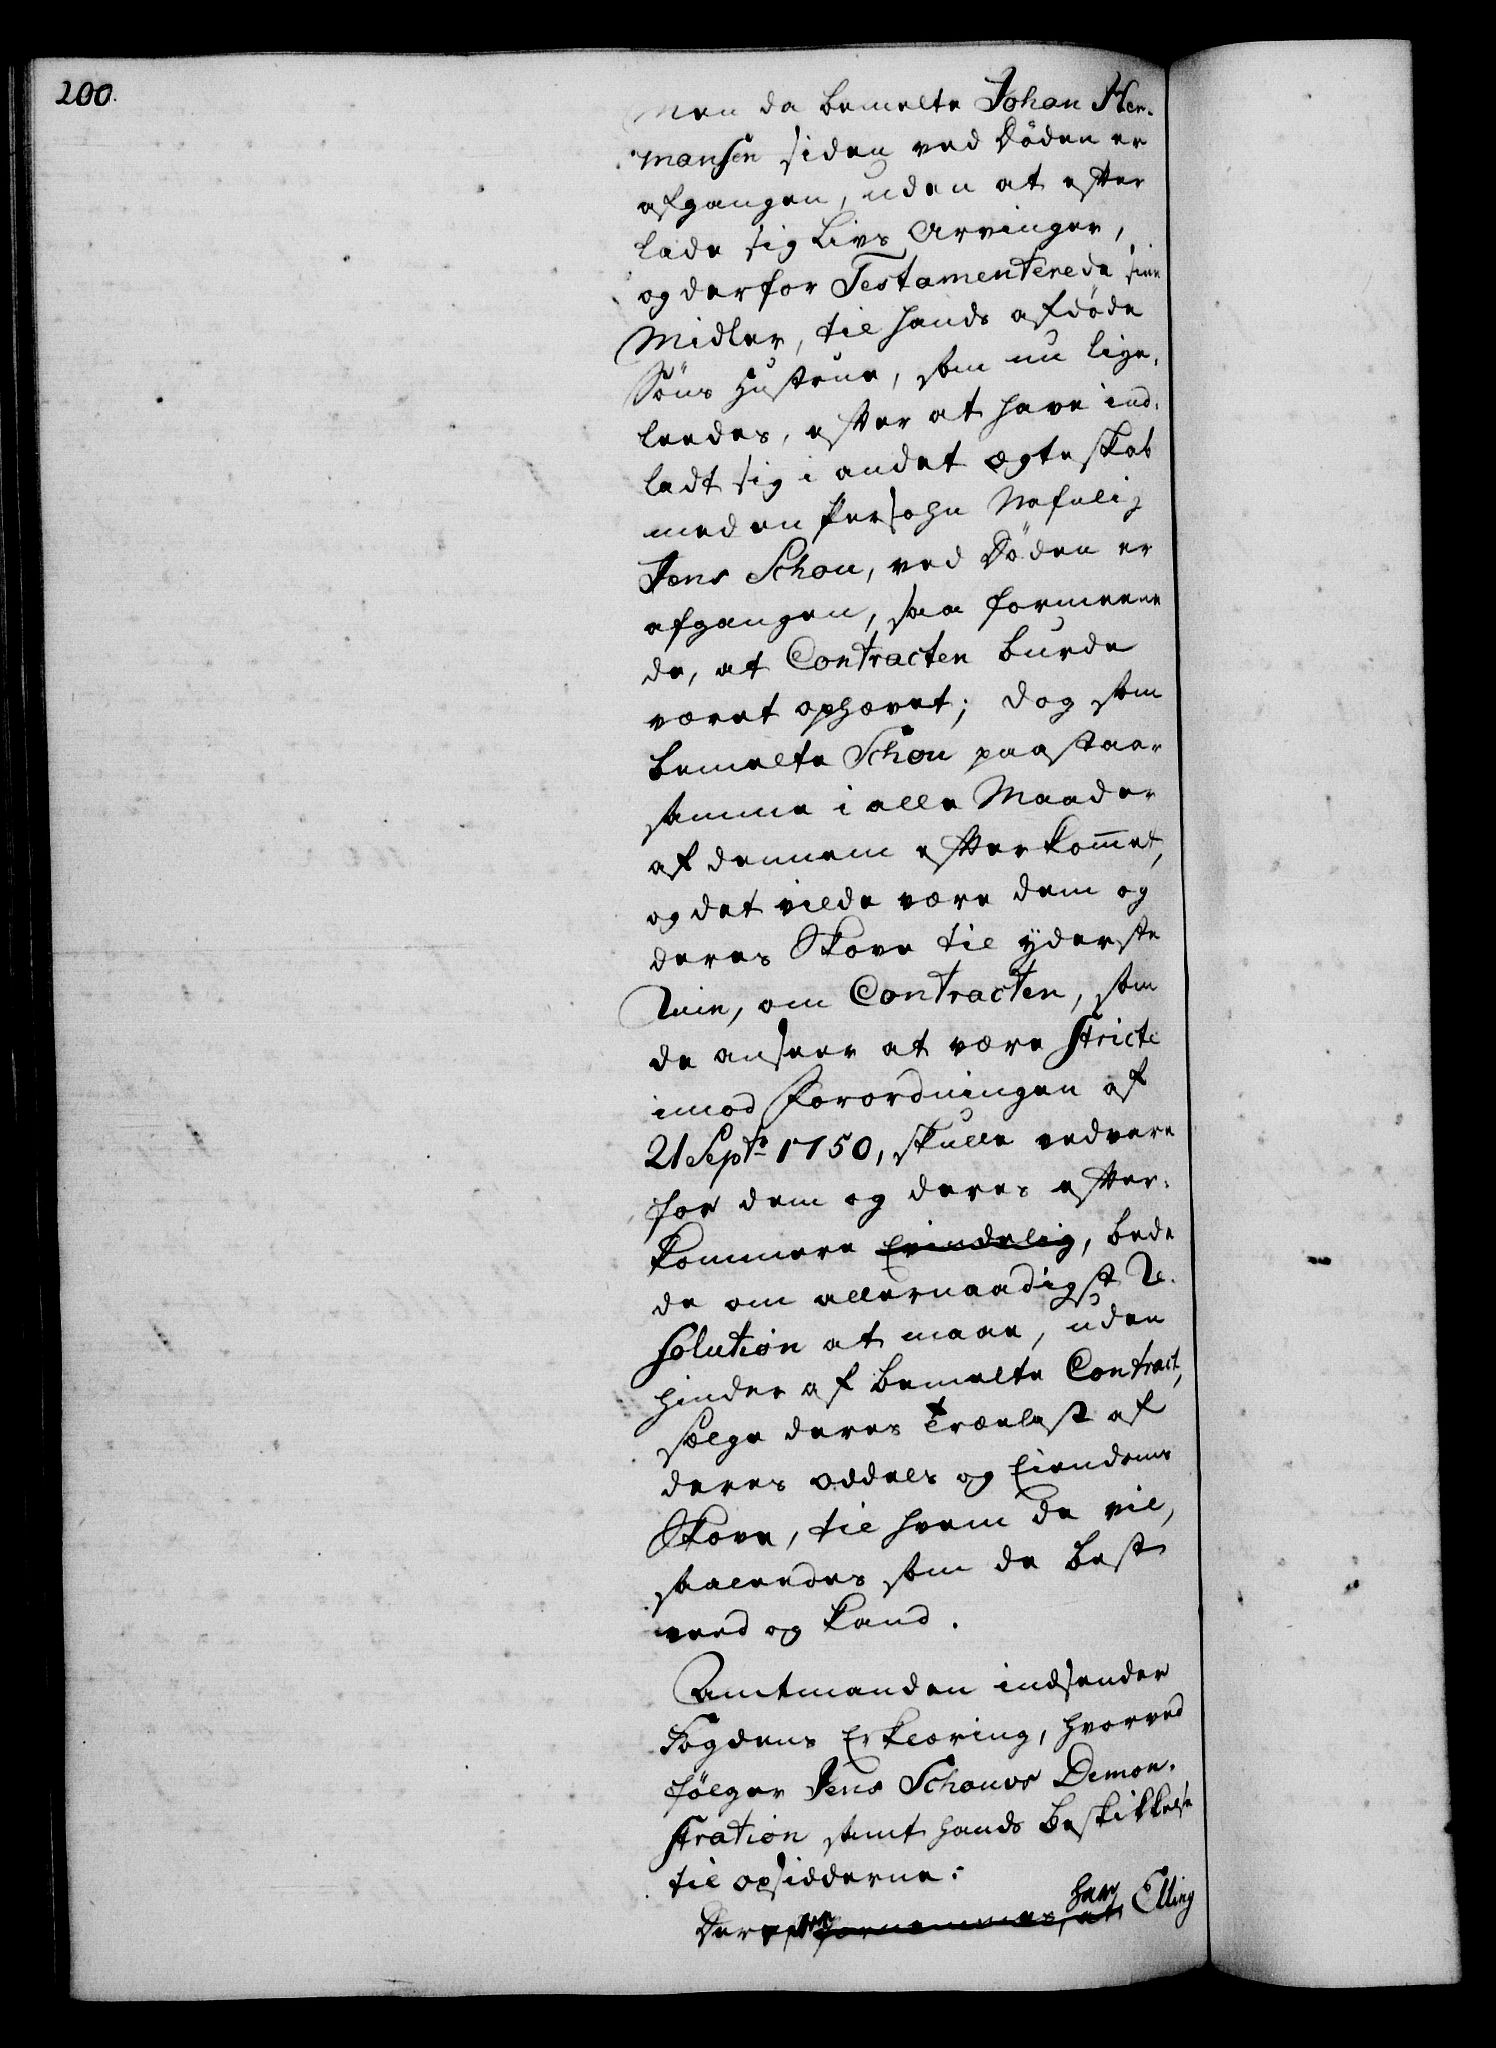 200.
Men da bemelte Johan Her-
mansen siden ved Döden er
afgangen, uden at efter
lade sig Livs Arvinger,
og derfor Testamenterede sine
Midler, til hands afdöde
Söns Hustrue, som nu lige-
leedes, efter at have ind-
ladt sig i andet ægteskab
med en Persohn Nafnlig
Jens Schou, ved Döden er
afgangen, saa formeene
de, at Contracten burde
været ophævet; dog som
bemelte Schou paastaar
samme i alle Maader
af dennem efterkom̅et,
og det vilde være dem og
deres Skove til yderste
Ruin, om Contracten, som
de anseer at være stricte
imod Forordningen af
21 Septr 1750, skulle vedvare
for dem og deres efter-
kommere Evindelig, bede
de om allernaadigst Re-
solution at maae, uden
hinder af bemelte Contract,
sælge deres Trælast af
deres oddels og Eiendoms
Skove, til hvem de vil,
saaleedes som de best
veed og kand.
Amtmanden indsender
Fogdens Erklæring, hvorved
fölger Jens Schouvs Demon-
stration samt hands Beskikkelse
til opsidderne:
Derefter fornemmes, at har Elling